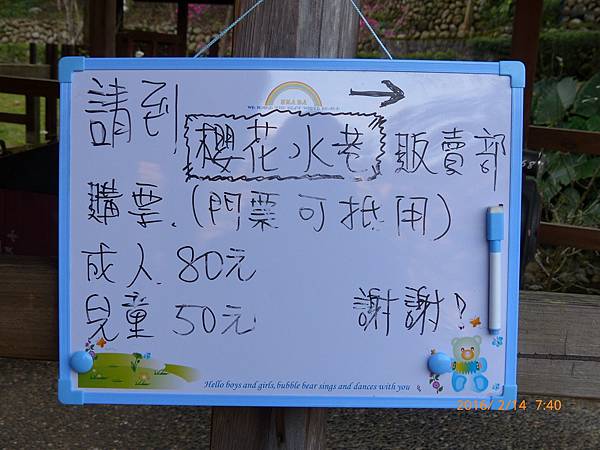 請到 櫻花水巷 販賣部
購票.(門票可抵用)
成人 80元
兒童 50元 謝謝!
Hello boys and girls, bubble bear sings and dances with you
2016/2/14 7:40